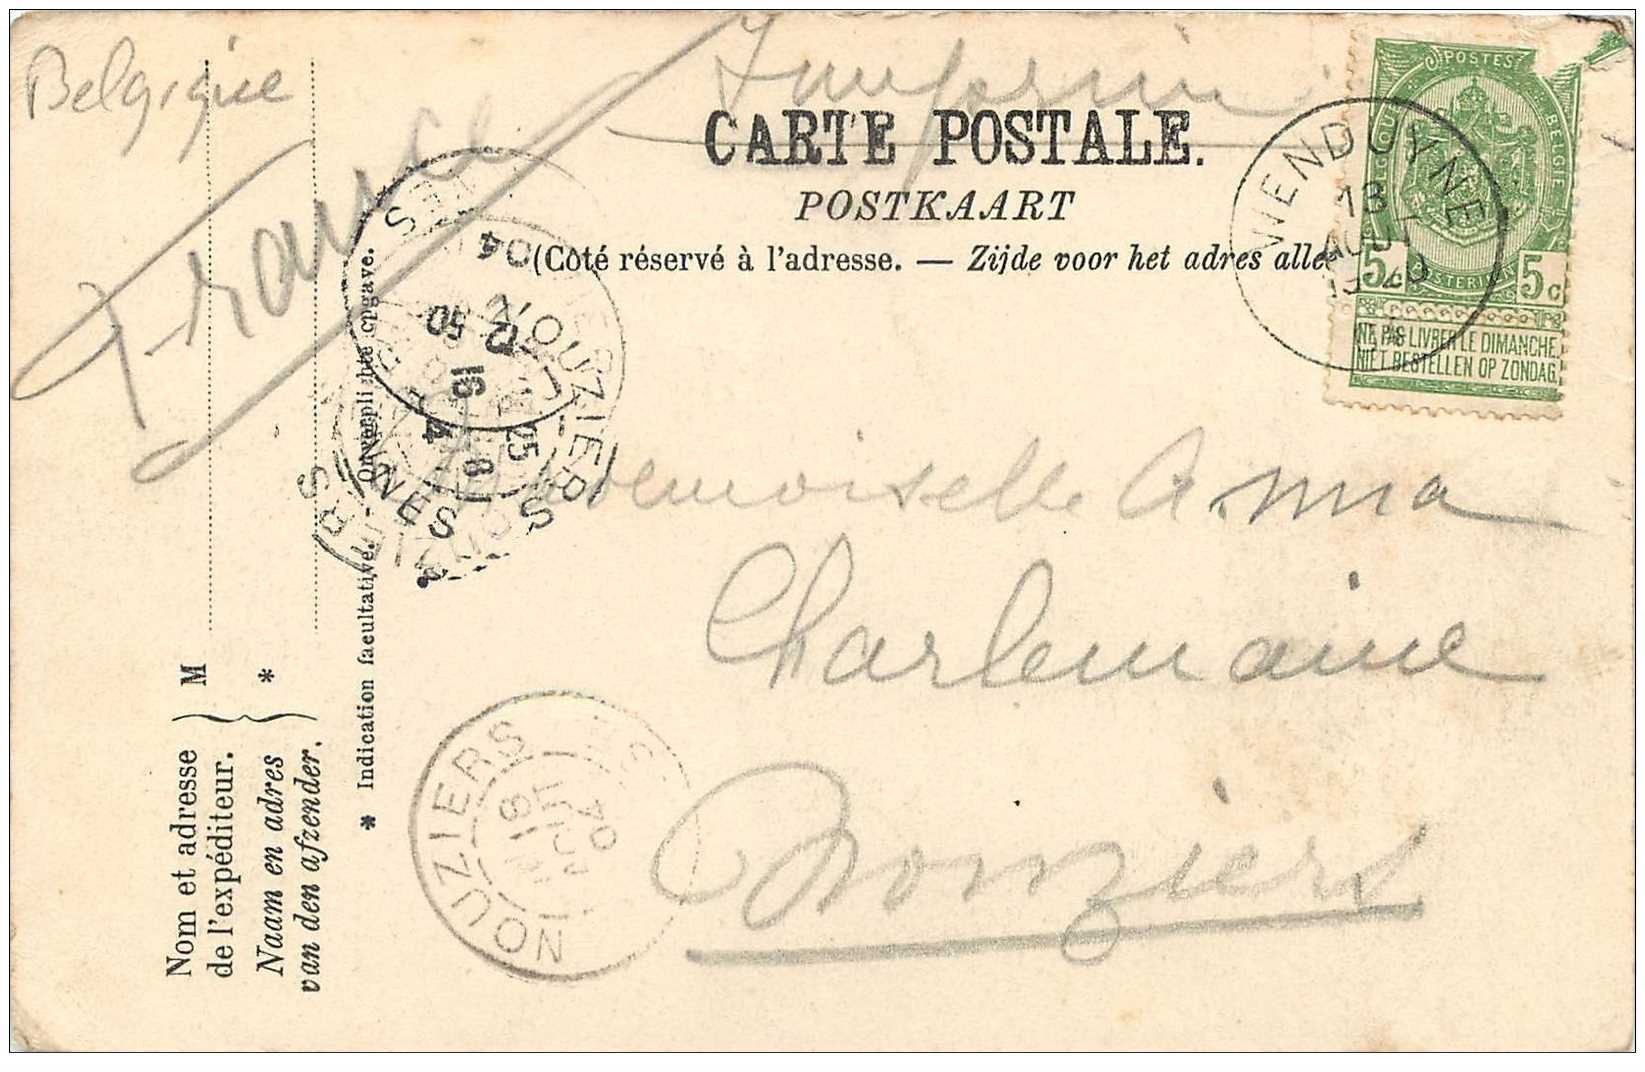 Belgique
France
Imprimé
CARTE POSTALE.
POSTKAART
(Côté réservé à l'adresse. — Zijde voor het adres alle
POSTES
BELGIQUE
BELGIE
POSTERIJEN
5c 5c
NE PAS LIVRER LE DIMANCHE.
NIET BESTELLEN OP ZONDAG.
WENDUYNE
13
AOUT
NOUZIERS
04
12 50
16
8
25
8
Mademoiselle Anna
Charlemaine
Nouziers
NOUZIERS
04
Nom et adresse
de l'expéditeur. } M
Naam en adres
van den afzender. } *
* Indication facultative. - Onverplichte opgave.